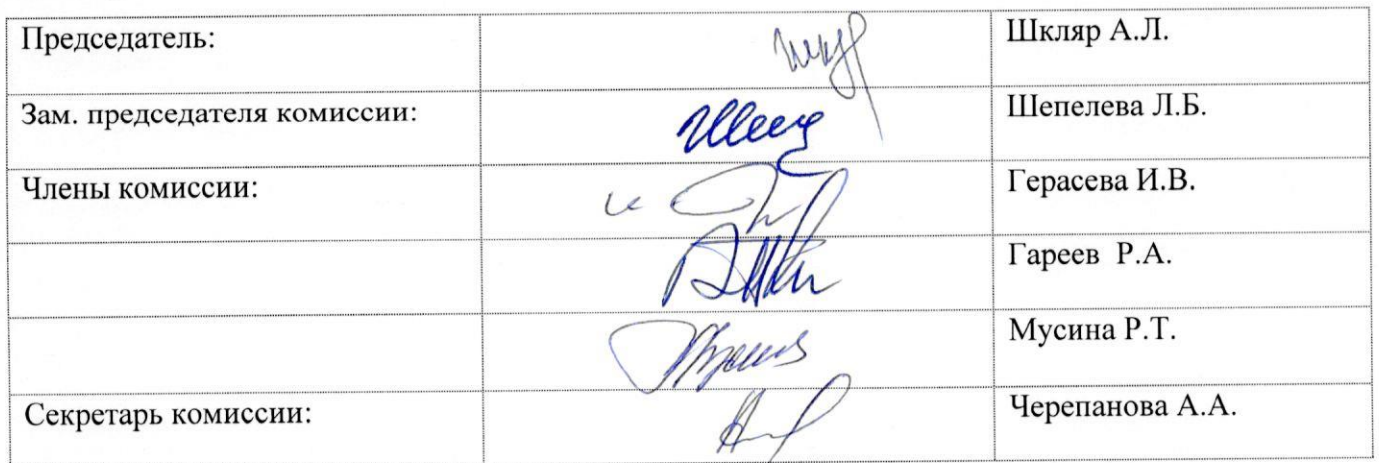 Председатель: Шкляр А.Л.
Зам. председателя комиссии: Шепелева Л.Б.
Члены комиссии: Герасева И.В.
Гареев Р.А.
Мусина Р.Т.
Секретарь комиссии: Черепанова А.А.